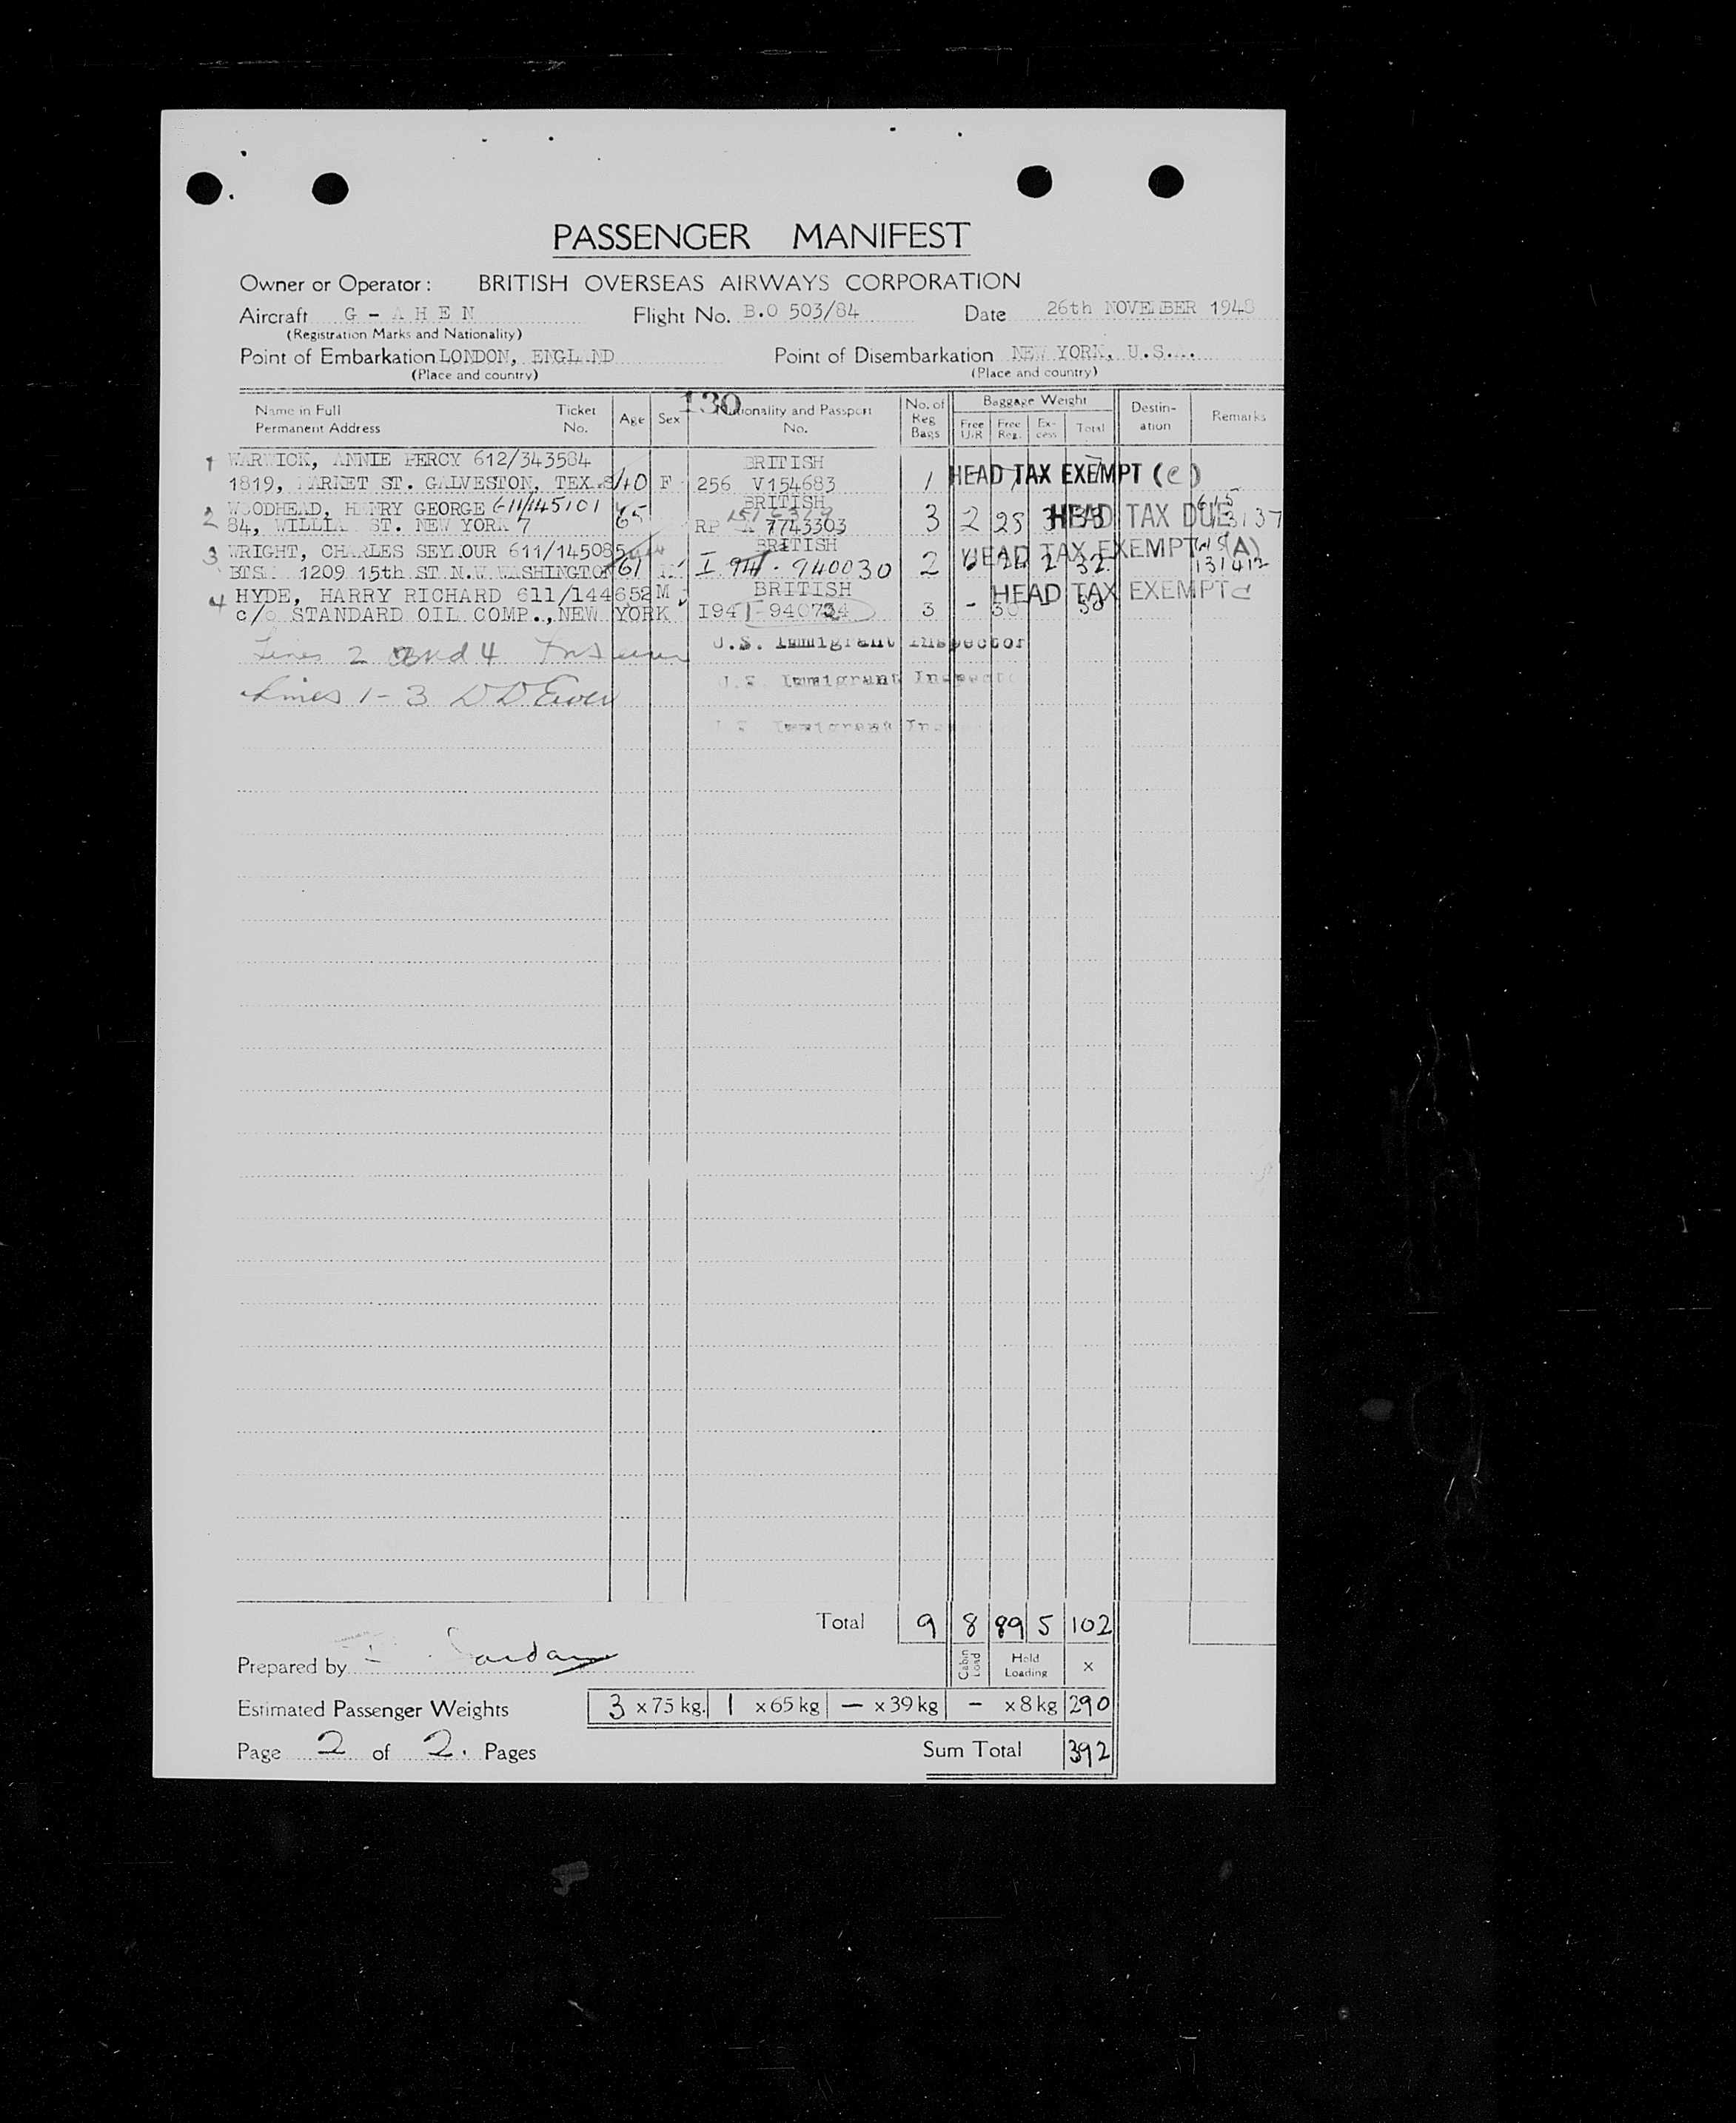 PASSENGER MANIFEST
Owner or Operator: BRITISH OVERSEAS AIRWAYS CORPORATION
Aircraft G - A H E N Flight No. B.O 503/84 Date 26th NOVEMBER 1948
(Registration Marks and Nationality)
Point of Embarkation LONDON, ENGLAND Point of Disembarkation NEW YORK, U.S.A.
(Place and country) (Place and country)
130
Name in Full Permanent Address Ticket No. Age Sex Nationality and Passport No. No. of Reg Bags Baggage Weight Free U/R Free Reg. Ex-cess Total Destin-ation Remarks
1 WARWICK, ANNIE PERCY 612/343584 BRITISH
1819, MARKET ST. GALVESTON, TEX. 40 F 256 V154683 1 HEAD TAX EXEMPT (C)
2 WOODHEAD, HENRY GEORGE 611/145101 65 BRITISH
84, WILLIAM ST. NEW YORK 7 RP 7743303 3 2 25 3 HEAD TAX DUE
3 WRIGHT, CHARLES SEYMOUR 611/145085 BRITISH HEAD TAX EXEMPT (A)
1209 15th ST N.W. WASHINGTON 61 I 94 - 940030 2 2 32 131412
4 HYDE, HARRY RICHARD 611/144652 M BRITISH HEAD TAX EXEMPT C
c/o STANDARD OIL COMP., NEW YORK I94 940734 3 - 30 - 30
Lines 2 and 4
U.S. Immigrant Inspector
Lines 1-3
U.S. Immigrant Inspector
U.S. Immigrant
Total 9 8 89 5 102
Cabin Load Hold Loading x
Prepared by
Estimated Passenger Weights 3 x 75 kg. 1 x 65 kg — x 39 kg - x 8 kg 290
Page 2 of 2. Pages Sum Total 392